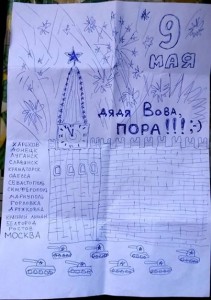 9
МАЯ
ДЯДЯ ВОВА,
ПОРА!!! :-)
ХАРЬКОВ
ДОНЕЦК
ЛУГАНСК
СЛАВЯНСК
КРАМАТОРСК
ОДЕССА
СЕВАСТОПОЛЬ
СИМФЕРОПОЛЬ
МАРИУПОЛЬ
ГОРЛОВКА
БЕЛГОРОД
РОСТОВ
МОСКВА